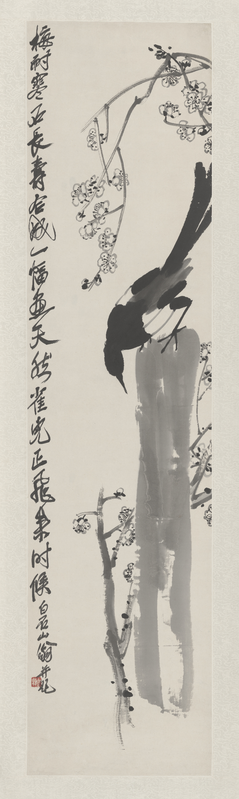 梅耐寒石長壽合成一幅画天然雀兒正飛來时候白石山翁并記